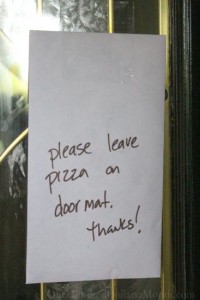 please leave
pizza on
door mat.
thanks!